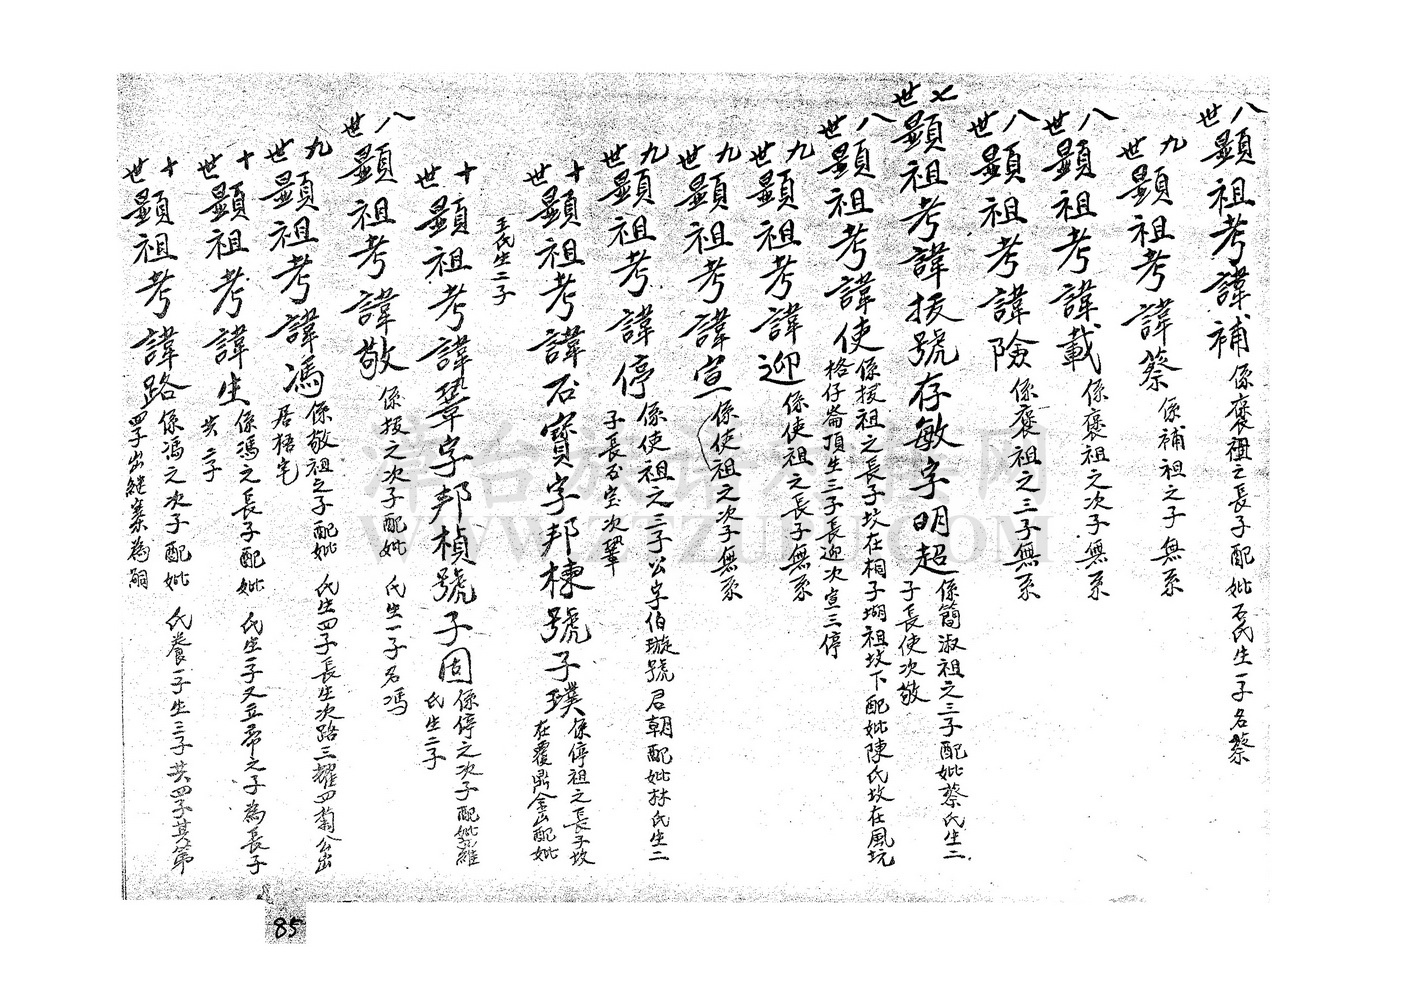 八世顯祖考諱補 係褒祖之長子配妣石氏生一子名蔡
九世顯祖考諱蔡 係補祖之子無系
八世顯祖考諱載 係褒祖之次子無系
八世顯祖考諱險 係褒祖之三子無系
七世顯祖考諱援號存敏字明超 係簡淑祖之三子配妣蔡氏生二
子長使次敬
八世顯祖考諱使 係援祖之長子坟在桐子堋祖坟下配妣陳氏坟在風坑
格仔崙頂生三子長迎次宣三停
九世顯祖考諱迎 係使祖之長子無系
九世顯祖考諱宣 係使祖之次子無系
九世顯祖考諱停 係使祖之三子公字伯璇號君朝配妣林氏生二
子長石宝次鞏
十世顯祖考諱石寶字邦棟號子璞 係停祖之長子坟
在覆鼎金山配妣
王氏生二子
十世顯祖考諱鞏字邦楨號子固 係停之次子配妣羅
氏生二子
八世顯祖考諱敬 係援之次子配妣 氏生一子名馮
九世顯祖考諱馮 係敬祖之子配妣 氏生四子長生次路三耀四菊公出
居梧宅
十世顯祖考諱生 係馮之長子配妣 氏生一子又立帶之子為長子
共二子
十世顯祖考諱路 係馮之次子配妣 氏養一子生三子共四子其第
四子出継纂為嗣
85
漳台族譜對接網
WWW.ZTZUPU.COM